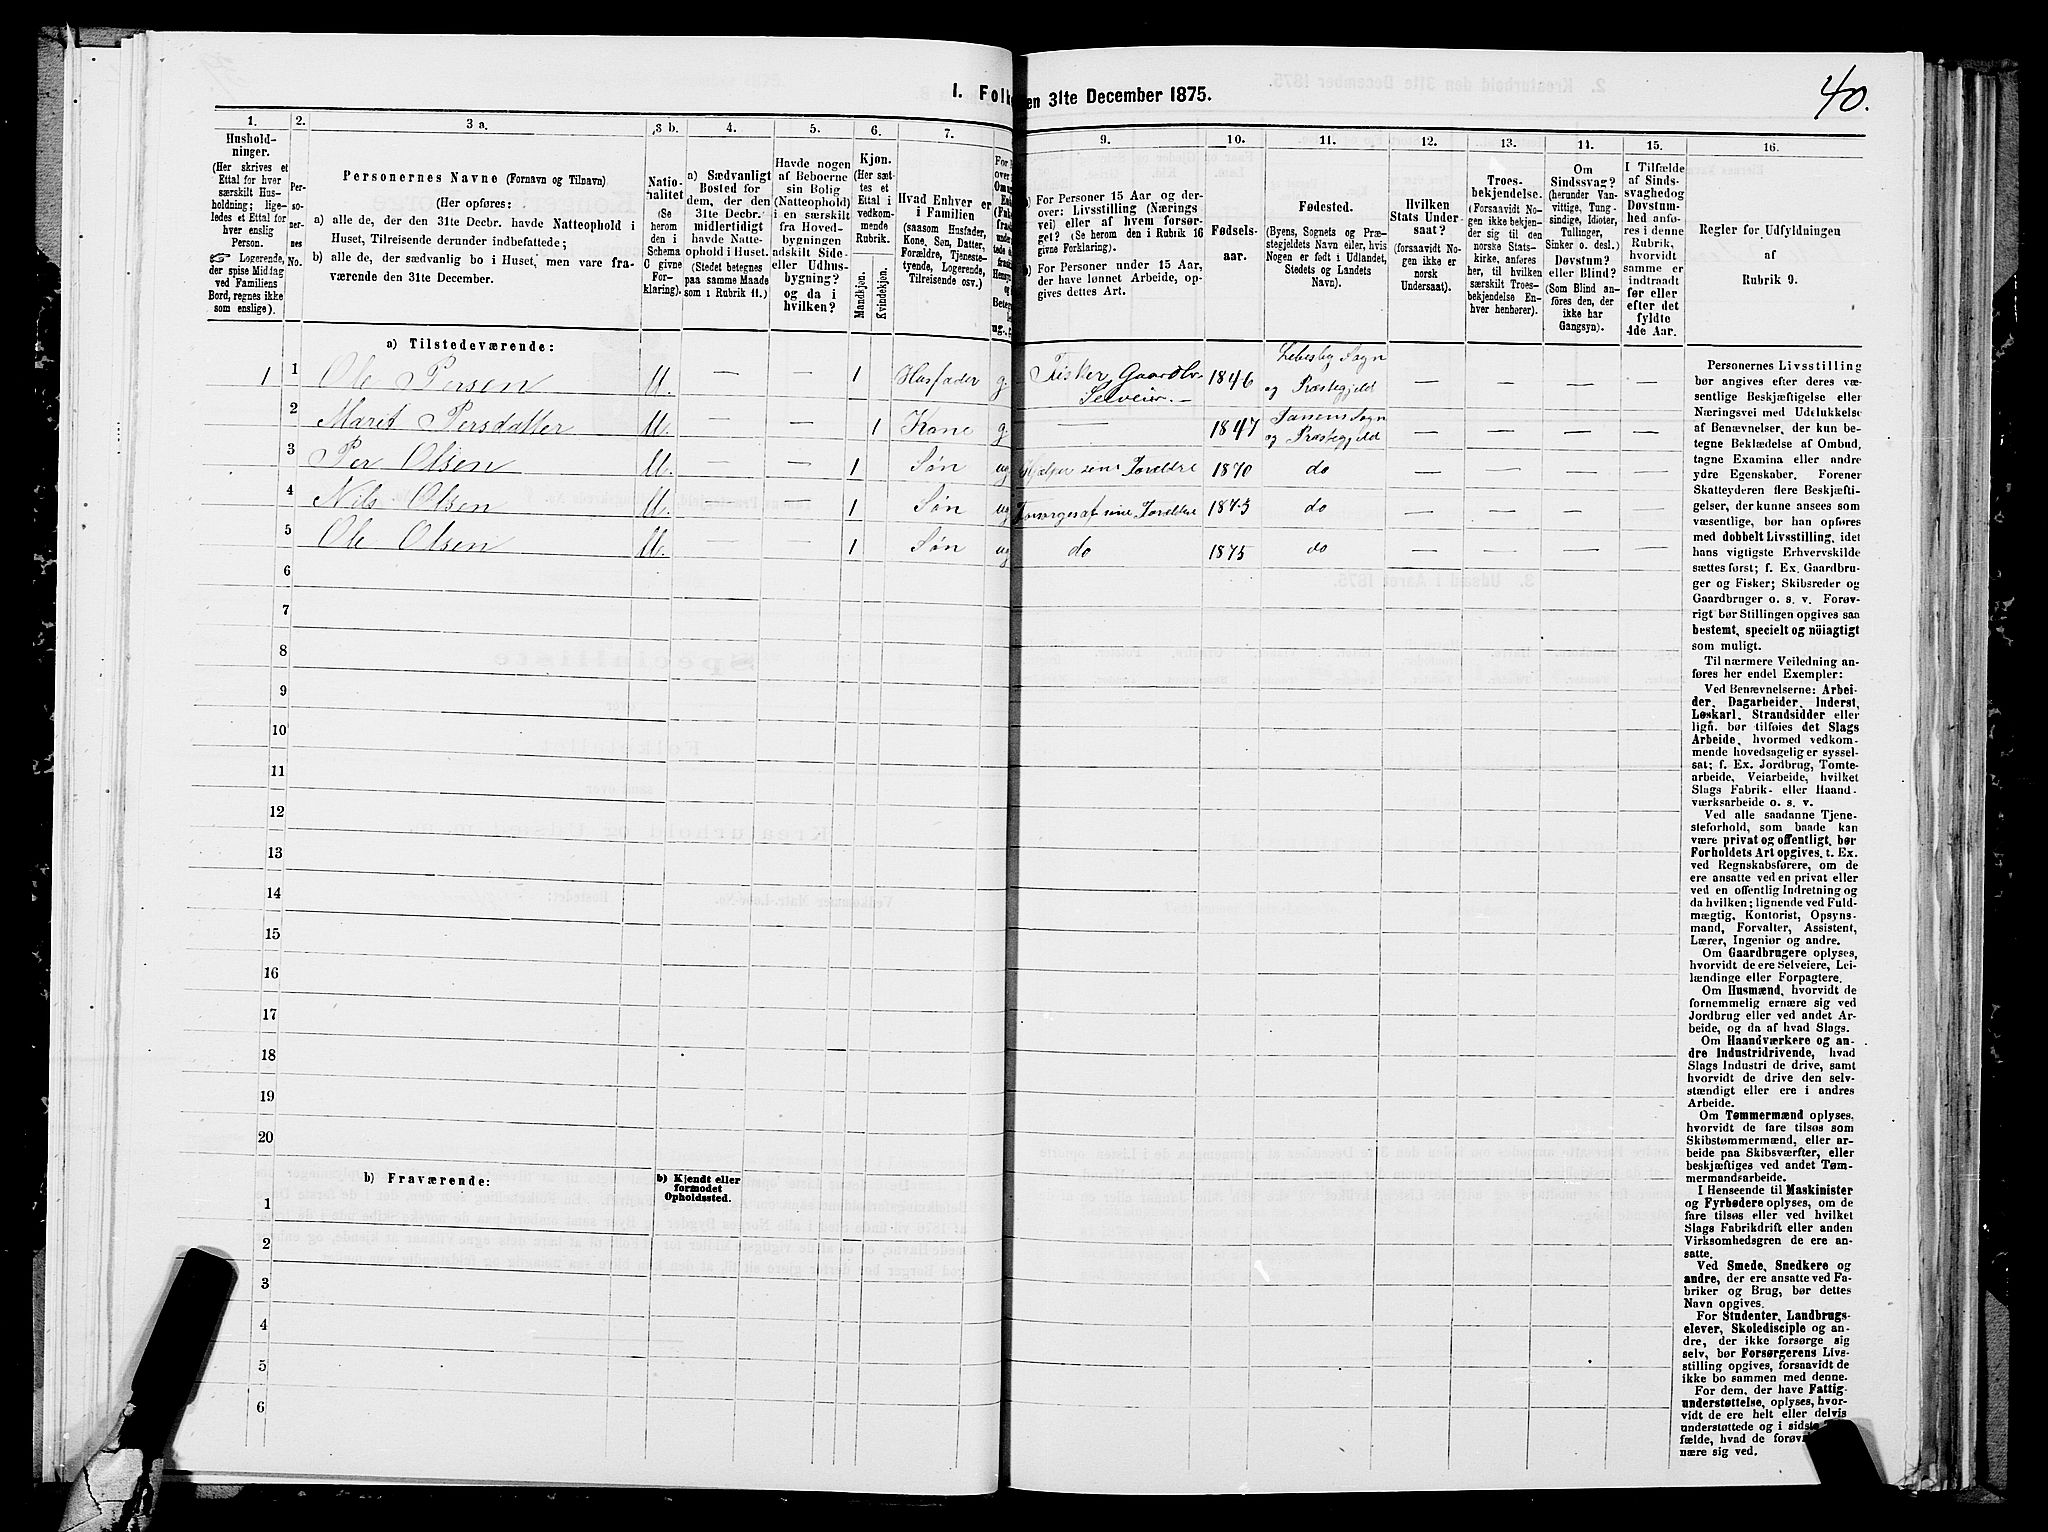 40.
I. Folk en 31te December 1875.
1. 2. 3 a. 3 b. 4. 5. 6. 7. 9. 10. 11. 12. 13. 14. 15. 16.
Hushold-
ninger.
(Her skrives et
Ettal for hver
særskilt Hus-
holdning; lige-
ledes et Ettal for
hver enslig
Person.
☞ Logerende,
der spise Middag
ved Familiens
Bord, regnes ikke
som enslige).
Per-
so-
ner-
nes
No.
Personernes Navne (Fornavn og Tilnavn)
(Her opføres:
a) alle de, der den 31te Decbr. havde Natteophold i
Huset, Tilreisende derunder indbefattede;
b) alle de, der sædvanlig bo i Huset, men vare fra-
værende den 31te December.
Natio-
nalitet
(Se
herom
den i
Schema
C givne
For-
klaring).
a) Sædvanligt
Bosted for
dem, der den
31te Decbr.
midlertidigt
havde Natte-
ophold i Huset.
(Stedet betegnes
paa samme Maade
som i Rubrik 11.)
Havde nogen
af Beboerne
sin Bolig
(Natteophold)
i en særskilt
fra Hoved-
bygningen
adskilt Side-
eller Udhus-
bygning?
og da i
hvilken?
Kjøn.
(Her sæt-
tes et
Ettal i
vedkom-
mende
Rubrik.
Mandkjøn.
Kvindekjøn.
Hvad Enhver er
i Familien
(saasom Husfader,
Kone, Søn, Datter,
Forældre, Tjeneste-
tyende, Logerende,
Tilreisende osv.)
a) For Personer 15 Aar og der-
over: Livsstilling (Nærings-
vei) eller af hvem forsør-
get? (Se herom den i Rubrik 16
givne Forklaring).
b) For Personer under 15 Aar,
der have lønnet Arbeide, op-
gives dettes Art.
Fødsels-
aar.
Fødested.
(Byens, Sognets og Præ-
stegjeldets Navn eller, hvis
Nogen er født i Udlandet,
Stedets og Landets
Navn).
Hvilken
Stats Under-
saat?
(forsaavidt No-
gen ikke er
norsk
Undersaat).
Troes-
bekjendelse.
(Forsaavidt No-
gen ikke bekjen-
der sig til den
norske Stats-
kirke, anføres
her, til hvilken
særskilt Troes-
bekjendelse En-
hver henhører).
Om
Sindssvag?
(herunder Van-
vittige, Tung-
sindige, Idioter,
Tullinger,
Sinker o. desl.)
Døvstum?
eller Blind?
(Som Blind an-
føres den, der
ikke har
Gangsyn).
I Tilfælde
af Sinds-
svaghed og
Døvstum-
hed anfø-
res i denne
Rubrik,
hvorvidt
samme er
indtraadt
før eller
efter det
fyldte
4de Aar.
Regler for Udfyldningen
af
Rubrik 9.
a) Tilstedeværende:
1 1 Ole Persen M. — — 1 Husfader g Fisker, Gaardbr. Selveier. — 1846 Lebesby Sogn og Præstegjeld — — — —
2 Marit Persdatter M. — — 1 Kone g — 1847 Tanens Sogn og Præstegjeld — — — —
3 Per Olsen M. — — 1 Søn ug Hjelper sine Foreldre 1870 do — — — —
4 Nils Olsen M. — — 1 Søn ug Forsørges af sine Foreldre 1873 do — — — —
5 Ole Olsen M. — — 1 Søn ug do 1875 do — — — —
6
7
8
9
10
11
12
13
14
15
16
17
18
19
20
b) Fraværende:
b) Kjendt eller
formodet
Opholdssted.
1
2
3
4
5
6
Personernes Livsstilling
bør angives efter deres væ-
sentlige Beskjæftigelse eller
Næringsvei med Udelukkelse
af Benævnelser, der kun be-
tegne Beklædelse af Ombud,
tagne Examina eller andre
ydre Egenskaber. Forener
Skatteyderen flere Beskjæfti-
gelser, der kunne ansees som
væsentlige, bør han opføres
med dobbelt Livsstilling, idet
hans vigtigste Erhvervskilde
sættes først; f. Ex. Gaardbru-
ger og Fisker; Skibsreder og
Gaardbruger o. s. v. Forøv-
rigt bør Stillingen opgives saa
bestemt, specielt og nöiagtigt
som muligt.
Til nærmere Veiledning an-
føres her endel Exempler:
Ved Benævnelserne: Arbei-
der, Dagarbeider, Inderst,
Løskarl, Strandsidder eller
lign. bør tilføies det Slags
Arbeide, hvormed vedkom-
mende hovedsagelig er syssel-
sat; f. Ex. Jordbrug, Tomte-
arbeide, Veiarbeide, hvilket
Slags Fabrik- eller Haand-
værksarbeide o. s. v.
Ved alle saadanne Tjene-
steforhold, som baade kan
være privat og offentligt, bør
Forholdets Art opgives, t. Ex.
ved Regnskabsførere, om de
ere ansatte ved en privat eller
ved en offentlig Indretning og
da hvilken; lignende ved Fuld-
mægtig, Kontorist, Opsyns-
mand, Forvalter, Assistent,
Lærer, Ingeniør og andre.
Om Gaardbrugere oplyses,
hvorvidt de ere Selveiere, Lei-
lændinge eller Forpagtere.
Om Husmænd, hvorvidt de
fornemmelig ernære sig ved
Jordbrug eller ved andet Ar-
beide, og da af hvad Slags.
Om Haandværkere og an-
dre Industridrivende, hvad
Slags Industri de drive, samt
hvorvidt de drive den selv-
stændigt eller ere i andres
Arbeide.
Om Tømmermænd oplyses,
hvorvidt de fare tilsøs som
Skibstømmermænd, eller ar-
beide paa Skibsværfter, eller
beskjæftiges ved andet Tøm-
mermandsarbeide.
I Henseende til Maskinister
og Fyrbødere oplyses, om de
fare tilsøs eller ved hvilket
Slags Fabrikdrift eller anden
Virksomhedsgren de ere an-
satte.
Ved Smede, Snedkere og
andre, der ere ansatte ved Fa-
briker og Brug, bør dettes
Navn opgives.
For Studenter, Landbrugs-
elever, Skoledisciple og an-
dre, der ikke forsørge sig
selv, bør Forsørgerens Livs-
stilling opgives, forsaavidt de
ikke bo sammen med denne.
For dem, der have Fattig-
understøttelse, oplyses, hvor-
vidt de ere helt eller delvis
understøttede og i sidste
fælde, hvad de forøv
nære sig ved.